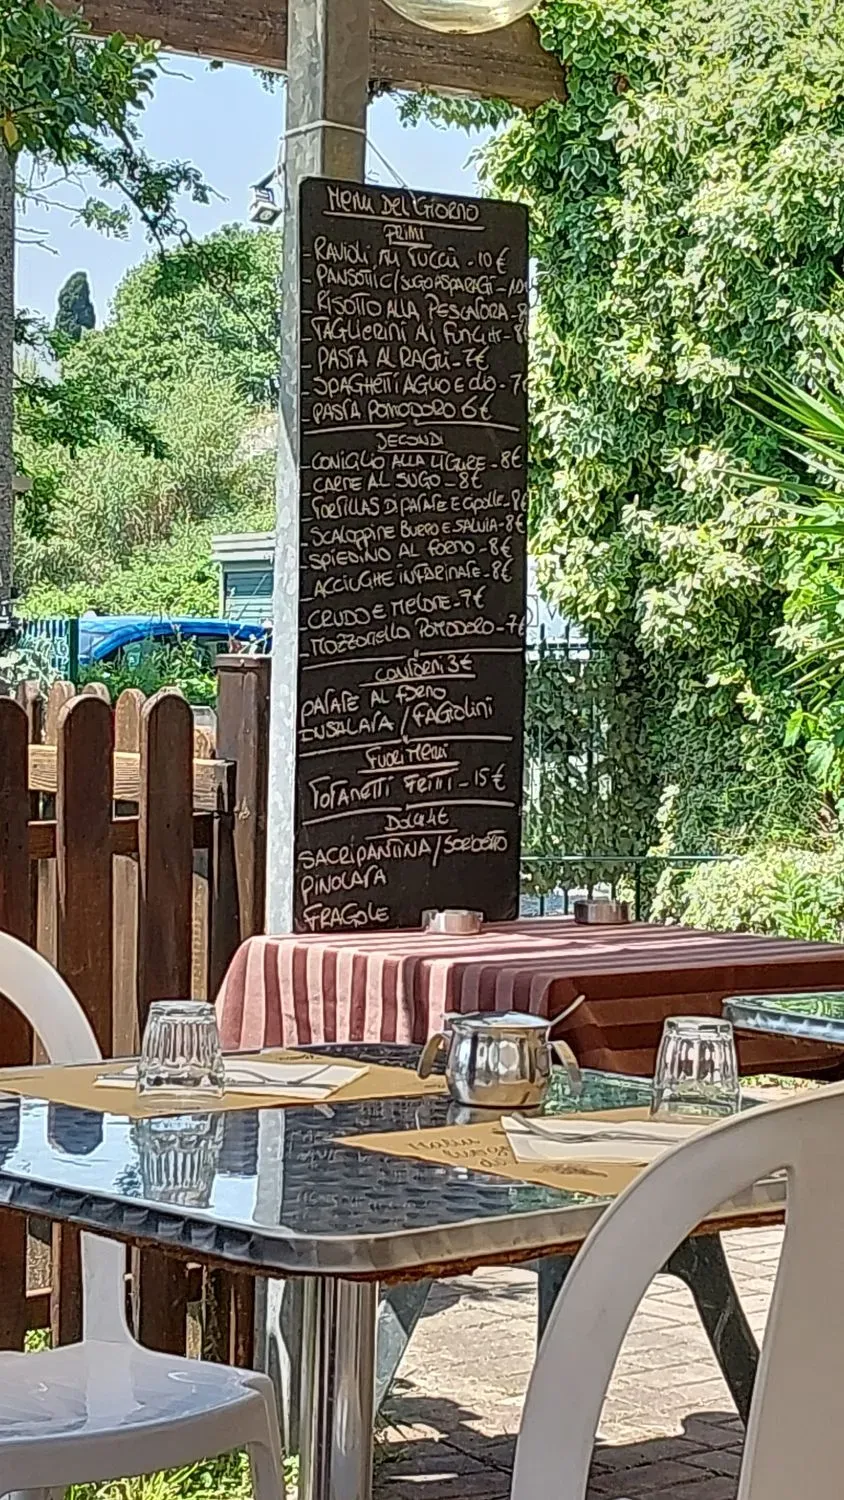 Menu Del Giorno
PRIMI
- RAVIOLI AU TUCCU - 10 €
- PANSOTTI C/SUGO ASPARAGI - 10
- RISOTTO ALLA PESCATORA - 8
- TAGLIERINI AI FUNGHI - 8
- PASTA AL RAGÙ - 7€
- SPAGHETTI AGLIO E OLIO - 7€
- PASTA POMODORO 6€
SECONDI
- CONIGLIO ALLA LIGURE - 8€
- CARNE AL SUGO - 8€
- TORTILLAS DI PATATE E Cipolle - 8€
- SCALOPPINE BURRO E SALVIA - 8€
- SPIEDINO AL FORNO - 8€
- ACCIUGHE INFARINATE - 8€
- CRUDO E MELONE - 7€
- MOZZARELLA POMODORO - 7€
CONTORNI 3€
PATATE AL FORNO
INSALATA / FAGIOLINI
FUORI MENU
TOTANETTI FRITTI - 15€
DOLCI 4€
SACRIPANTINA / SORBETTO
PINOLATA
FRAGOLE